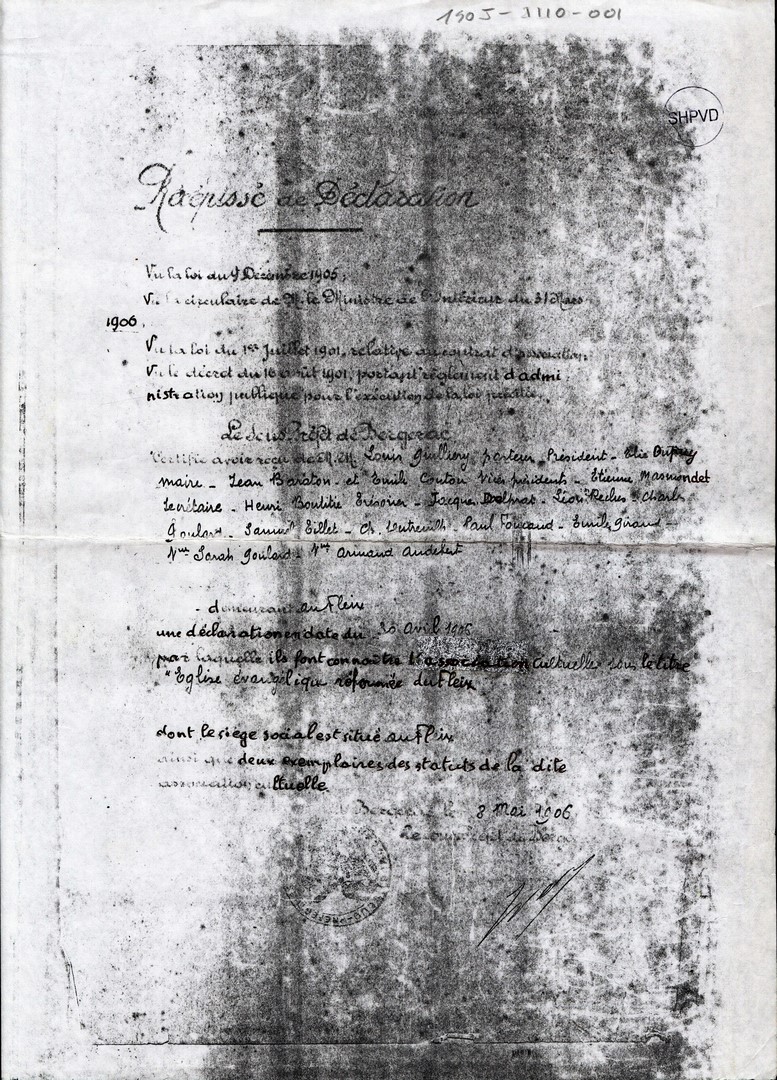 1905-1110-001
SHPVD
Récépissé de Déclaration
Vu la loi du 9 Décembre 1905,
Vu la circulaire de M. le Ministre de l'Intérieur du 31 Mars
1906,
Vu la loi du 1er Juillet 1901, relative au contrat d'association
Vu le décret du 16 août 1901, portant règlement d'admi
nistration publique pour l'exécution de la loi précitée,
Le Sous Préfet de Bergerac
Certifie avoir reçu de M.M. Louis pasteur Président - Elie Dupuy
maire - Jean Baraton - et Emile Couton Vices présidents - Etienne Masmondet
Secrétaire - Henri Boulitie Trésorier - Jacques Delmas - Léon Reclus - Charles
Goulard - Samuel Eillet - Ch. - Paul Foucaud - Emile Giraud -
Mme Sarah Goulard - Mme Armand Audebert
- demeurant au Fleix
une déclaration en date du 30 avril 1906
par laquelle ils font connaître l'association cultuelle sous le titre
"Eglise évangélique réformée du Fleix
dont le siège social est situé au Fleix
ainsi que deux exemplaires des statuts de la dite
association cultuelle.
Bergerac le 8 Mai 1906
Le sous préfet de Bergerac
SOUS-PREFECTURE